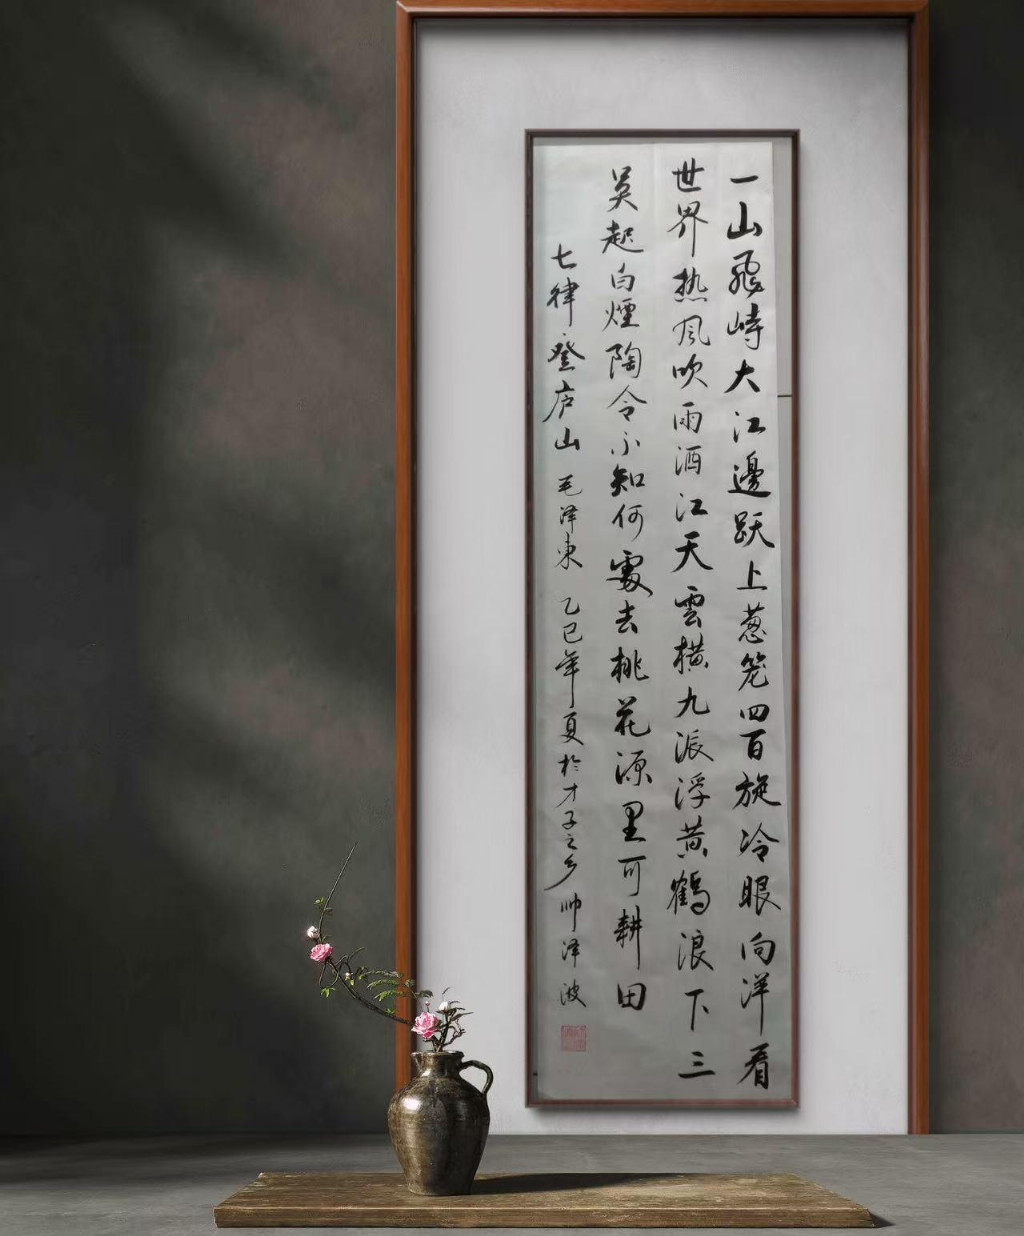 一山飛峙大江邊跃上葱笼四百旋冷眼向洋看
世界热风吹雨洒江天雲横九派浮黄鶴浪下三
吴起白煙陶令不知何處去桃花源里可耕田
七律·登庐山 毛泽東 乙巳年夏於才子之乡 帅泽波